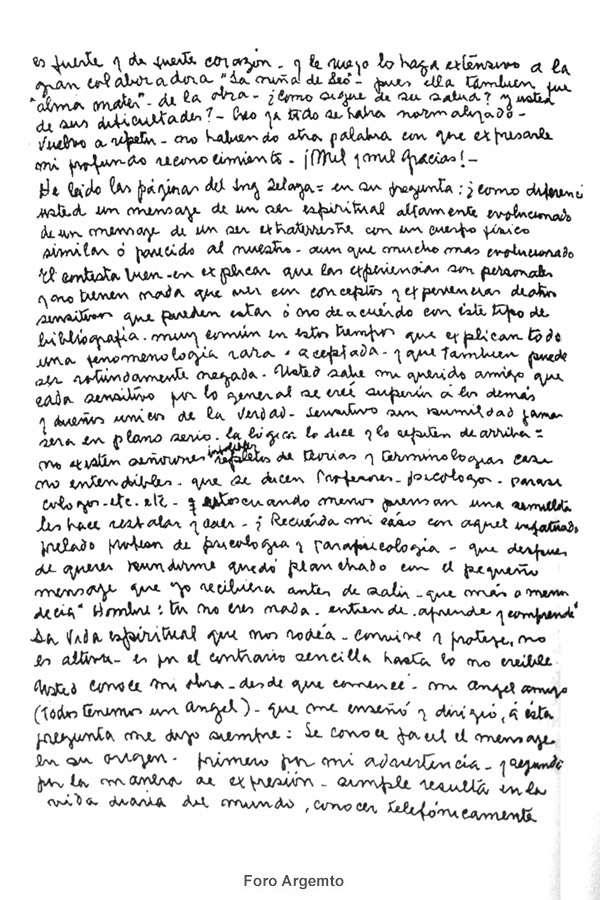 es fuerte y de fuerte corazón - y le ruego lo haga extensivo a la
gran colaboradora "La niña de Leo" - pues ella tambien fue
"alma mater" - de la obra - ¿como sigue de su salud? y usted
de sus dificultades? - Creo ya todo se habrá normalizado -
Vuelvo a repetir - no habiendo otra palabra con que expresarle
mi profundo reconocimiento - ¡Mil y mil Gracias! -
He leido las páginas del Ing Zelaya = en su pregunta: ¿como diferenci
usted un mensage de un ser espiritual altamente evolucionado
de un mensage de un ser extraterrestre con un cuerpo físico
similar ó parecido al nuestro - aun que mucho mas evolucionado
El contesta bien - en explicar que las experiencias son personales
y no tienen nada que ver con conceptos y experiencias de otros
sensitivos que pueden estar ó no de acuérdo con éste tipo de
bibliografía - muy común en estos tiempos que explican todo
una fenomenología rara - aceptada - y que tambien puede
ser rotundamente negada. Usted sabe mi querido amigo que
cada sensitivo por lo general se creé superior a los demás
y dueños unicos de la verdad - sensitivo sin humildad jamas
sera en plano serio. la lógica lo dice y lo repiten de arriba =
no existen señorones repletos de teorias y terminologias casi
no entendibles - que se dicen Profesores - psicologos - parasi
cologos - etc. etc - y estos cuando menos piensan una semillita
les hace resbalar y caer - ¿Recuérda mi cáso con aquel infatuado
prelado profesor de psicologia y Parapsicología - que despues
de querer hundirme quedó planchado con el pequeño
mensage que yo recibiera antes de salir - que más o menos
decia "Hombre: tu no eres nada. entiende. aprende y comprende"
La Vida espiritual que nos rodéa - convive y protege, no
es altiva - es por el contrario sencilla hasta lo no creíble
Usted conoce mi obra - desde que comencé - mi angel amigo
(Todos tenemos un Angel) - que me enseñó y dirigió, á ésta
pregunta me dijo siempre: Se conoce facil el mensage
en su origen - primero por mi advertencia - y segundo
por la manera de expresión - simple resulta en la
vida diaria del mundo, conocer telefónicamente
Foro Argemto